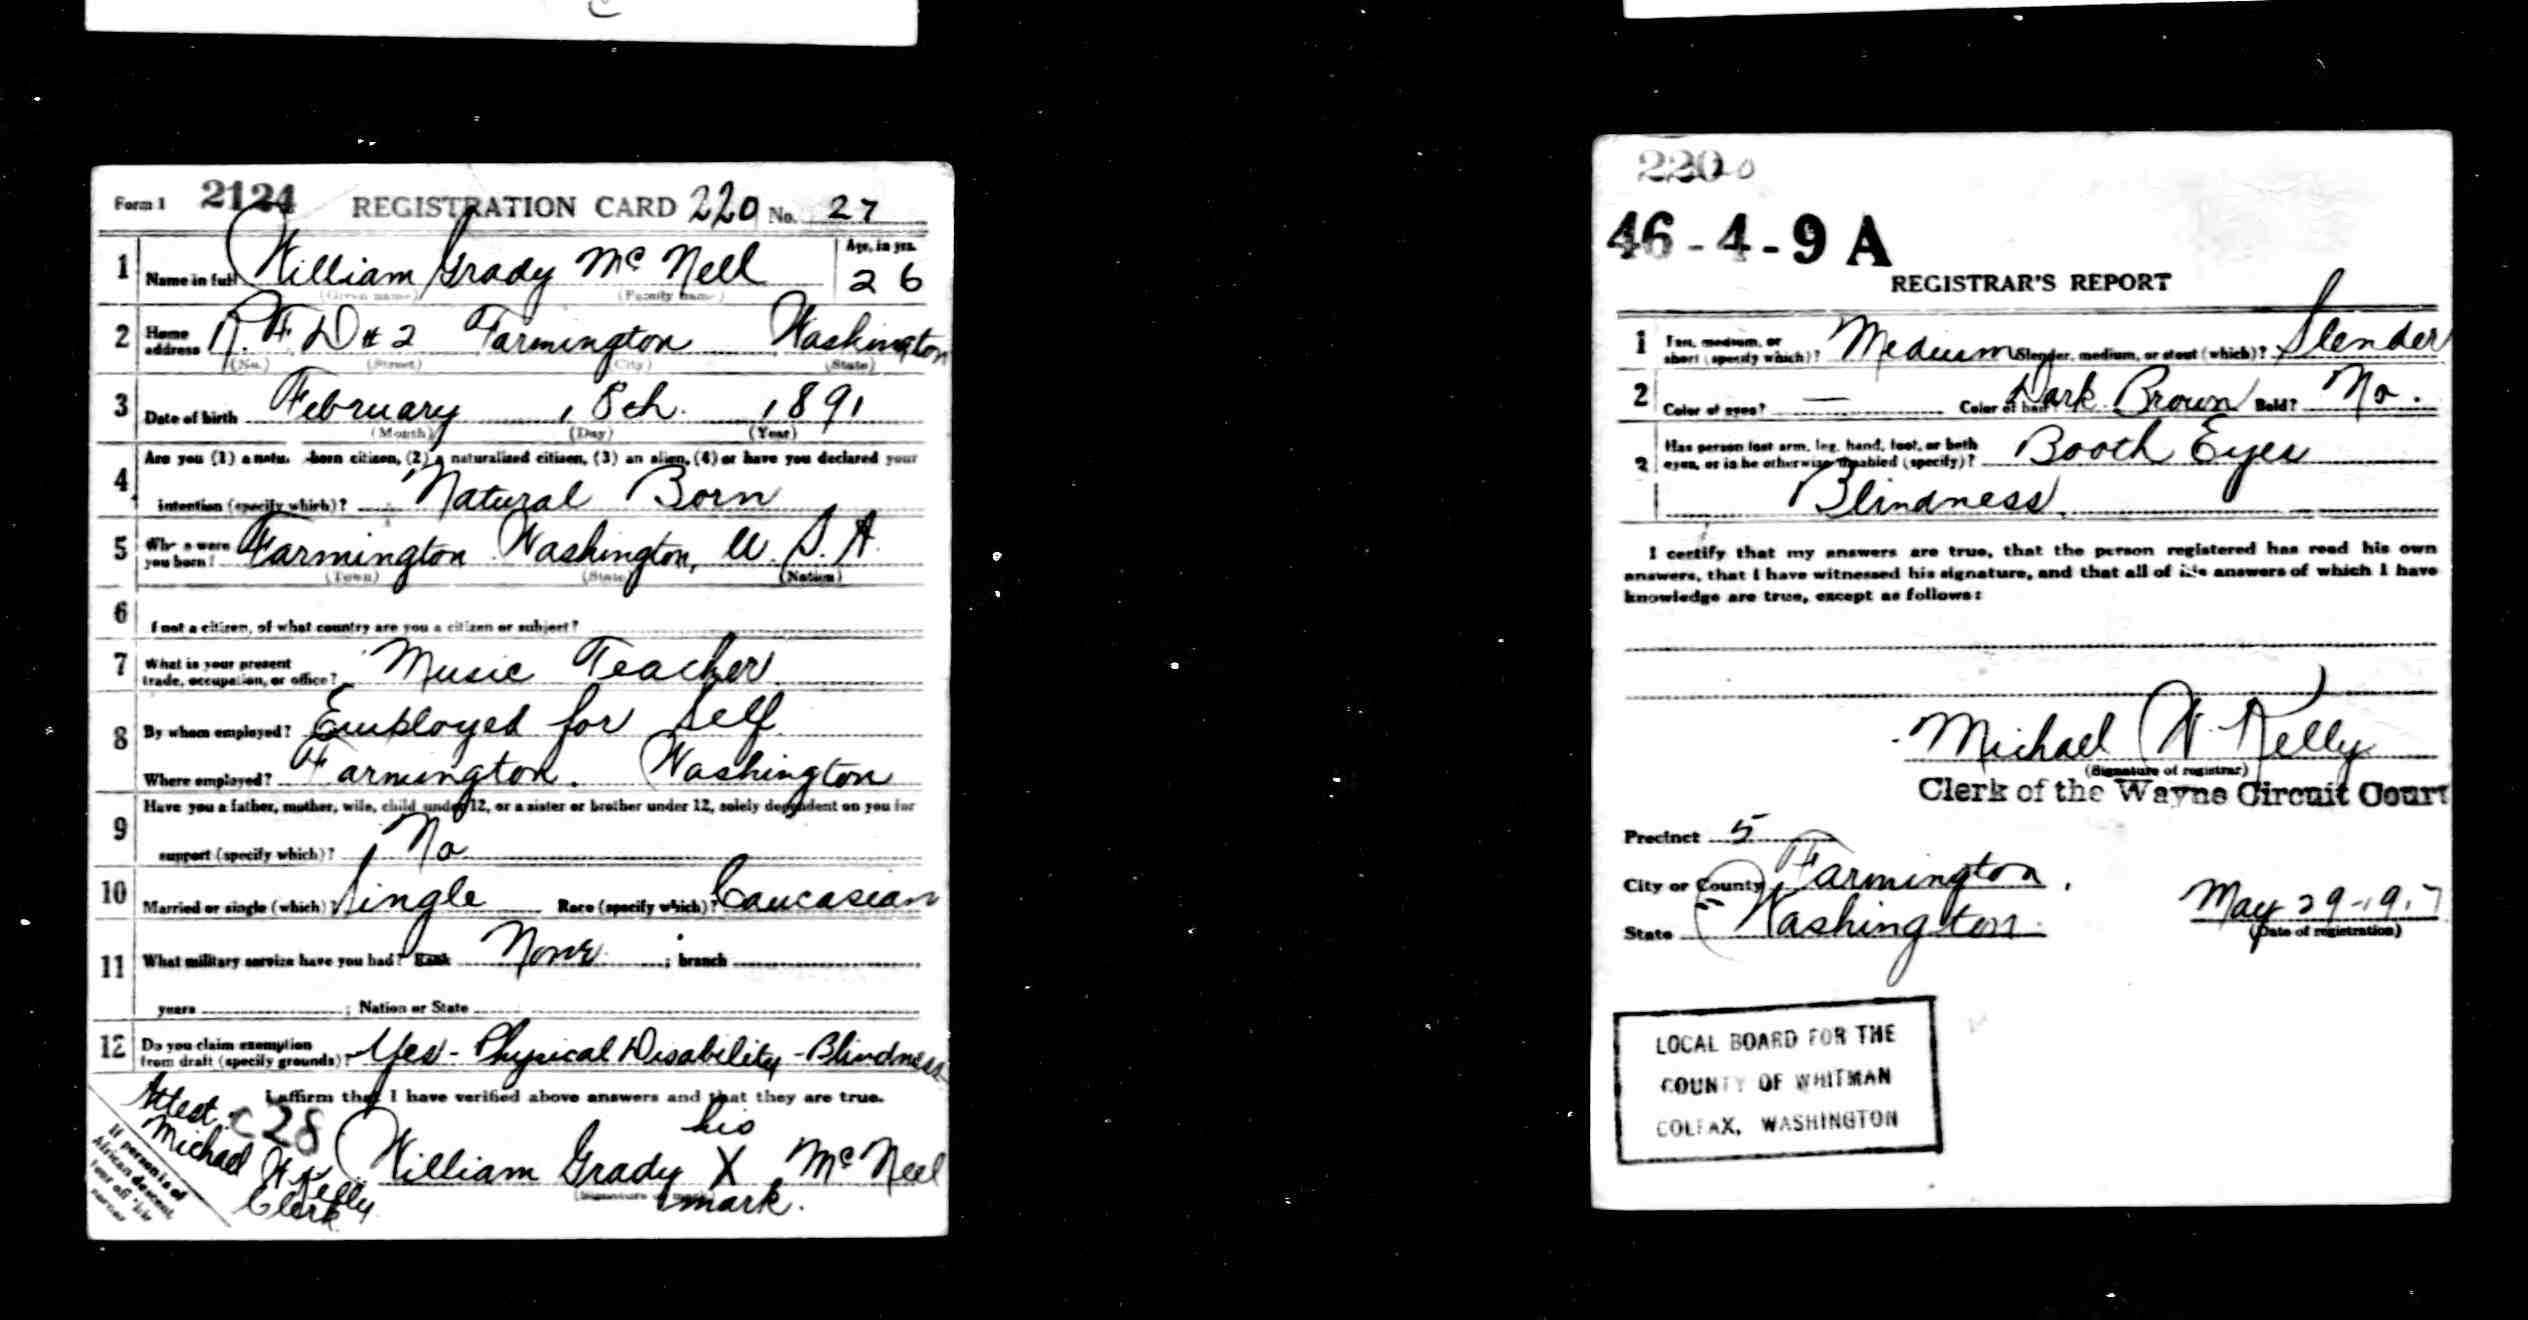 Form 1 2124 REGISTRATION CARD 220 No. 27
1 Name in full William Grady Mc Nell Age, in yrs. 26
(Given name) (Family name)
2 Home address R. F D # 2 Farmington Washington
(No.) (Street) (City) (State)
3 Date of birth February 8th. 1891
(Month) (Day) (Year)
4 Are you (1) a natu. -born citizen, (2) a naturalized citizen, (3) an alien, (4) or have you declared your
intention (specify which)? Natural Born
5 Where were you born? Farmington Washington, U. S. A.
(Town) (State) (Nation)
6 I not a citizen, of what country are you a citizen or subject?
7 What is your present trade, occupation, or office? Music Teacher
8 By whom employed? Employed for Self
Where employed? Farmington. Washington
9 Have you a father, mother, wife, child under 12, or a sister or brother under 12, solely dependent on you for
support (specify which)? No
10 Married or single (which)? Single Race (specify which)? Caucasian
11 What military service have you had? Rank None ; branch
years ; Nation or State
12 Do you claim exemption from draft (specify grounds)? Yes - Physical Disability - Blindness
I affirm that I have verified above answers and that they are true.
Attest. C28 his
Michael W Kelly William Grady X Mc Neel
Clerk (Signature or mark) mark.
If person is of
African descent,
tear off this
corner
220
46 - 4 - 9 A
REGISTRAR'S REPORT
1 Tall, medium, or short (specify which)? Medium Slender, medium, or stout (which)? Slender
2 Color of eyes? — Color of hair? Dark Brown Bald? No.
3 Has person lost arm, leg, hand, foot, or both
eyes, or is he otherwise disabled (specify)? Booth Eyes
Blindness
I certify that my answers are true, that the person registered has read his own
answers, that I have witnessed his signature, and that all of his answers of which I have
knowledge are true, except as follows:
Michael W. Kelly
(Signature of registrar)
Clerk of the Wayne Circuit Court
Precinct 5
City or County Farmington,
State Washington. May 29-1917
(Date of registration)
LOCAL BOARD FOR THE
COUNTY OF WHITMAN
COLFAX, WASHINGTON